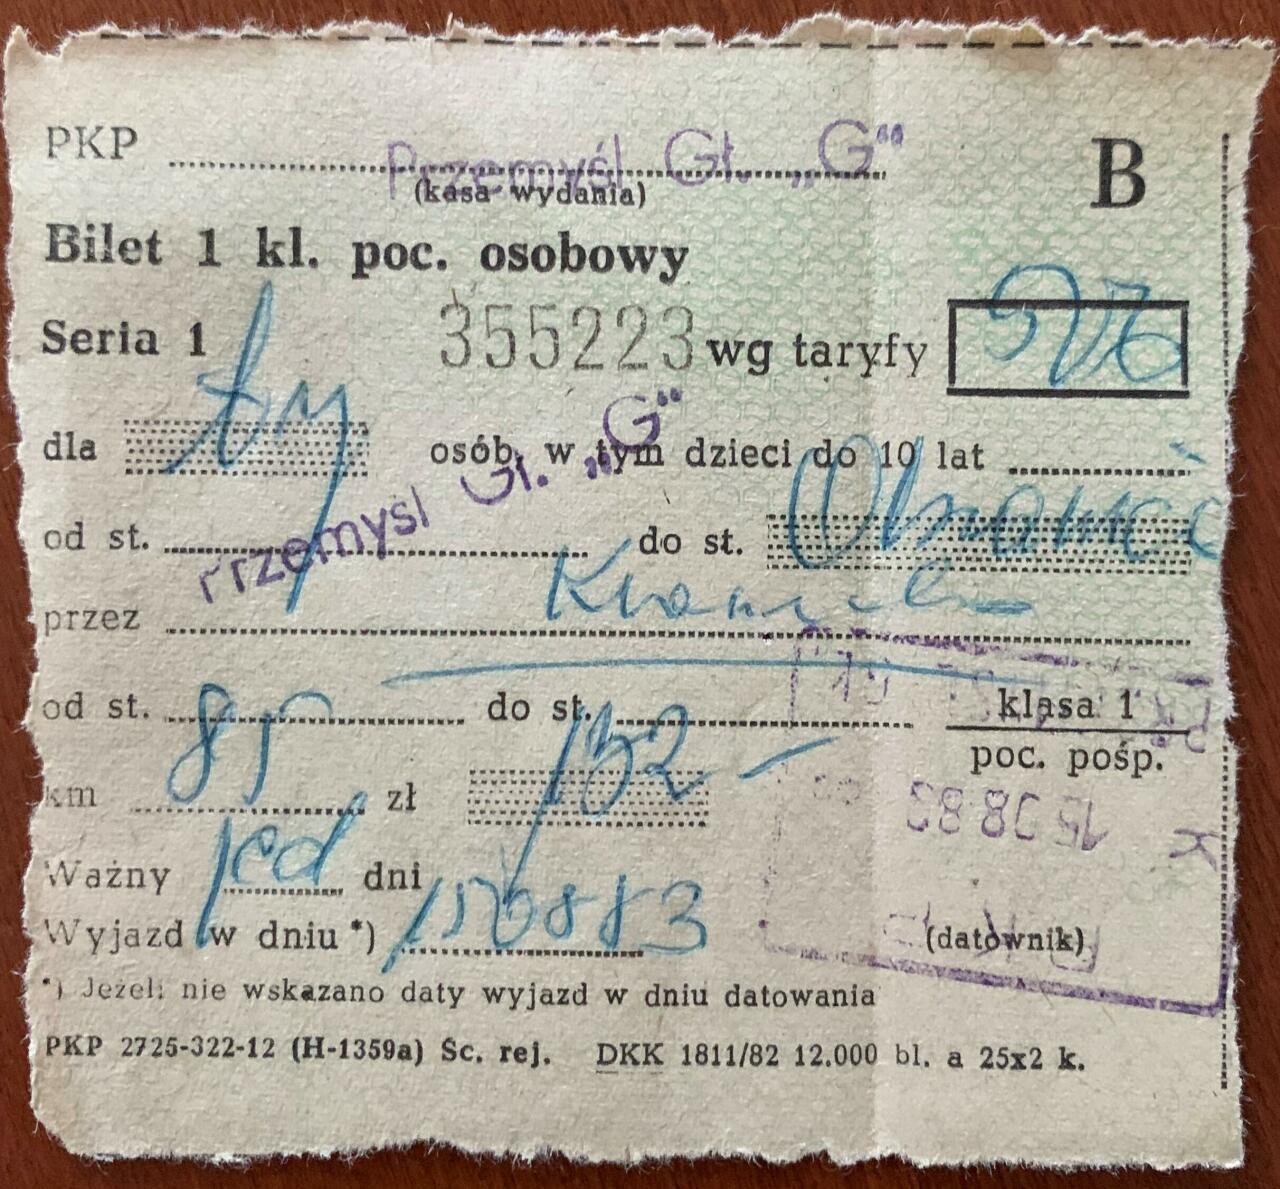 PKP Przemyśl Gł. „G“ B
(kasa wydania)
Bilet 1 kl. poc. osobowy
Seria 1 355223 wg taryfy
dla osób, w tym dzieci do 10 lat
od st. Przemyśl Gł. „G“ do st.
przez
od st. do st. klasa 1
poc. pośp.
km 85 zł 132 –
15 08 83
Ważny jed dni
Wyjazd w dniu *) 150883 (datownik)
*) Jeżeli nie wskazano daty wyjazd w dniu datowania
PKP 2725-322-12 (H-1359a) Sc. rej. DKK 1811/82 12.000 bl. a 25x2 k.